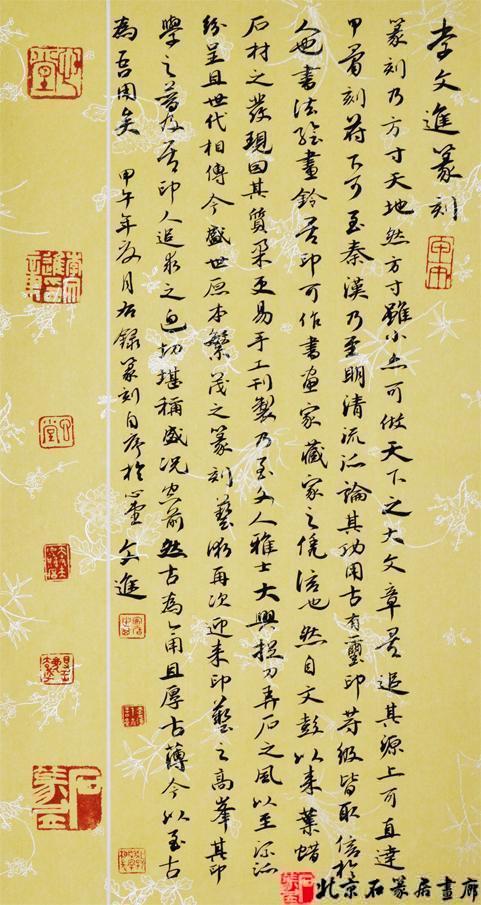 李文進篆刻
篆刻乃方寸天地然方寸雖小亦可做天下之大文章若追其源上可直達
甲骨刻符下可至秦漢乃至明清流派論其功用古有璽印等級皆取信於
人也書法繪畫鈐居印可作書畫家藏家之憑信也然自文彭以來葉蠟
石材之發現因其質柔更易手工刊製乃至文人雅士大興捉刀弄石之風以至流派
紛呈且世代相傳今盛世原本繁茂之篆刻藝術再次迎來印藝之高峯其印
學之普及居印人追求之迫切堪稱盛況空前然古為今用且厚古薄今以至古
為吾用矣 甲午年月右錄篆刻自序於心堂 文進
北京石篆居畫廊